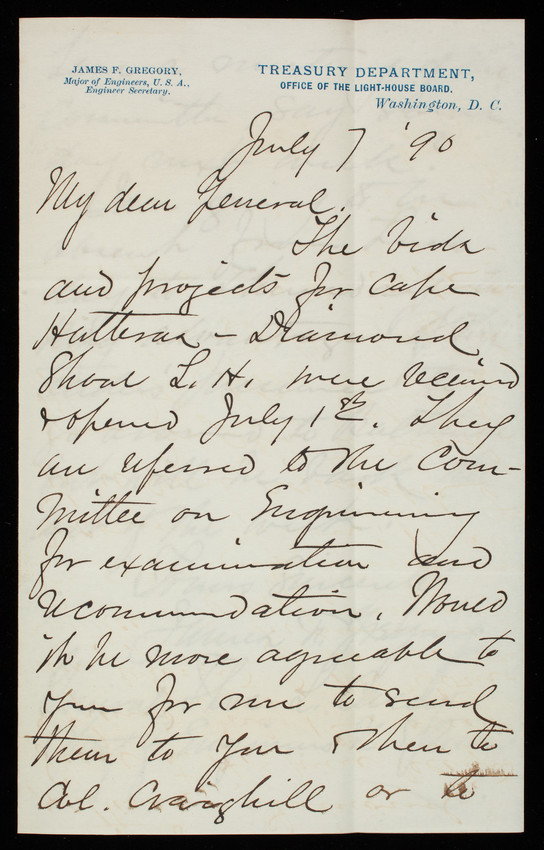 JAMES F. GREGORY,
Major of Engineers, U. S. A.,
Engineer Secretary.
TREASURY DEPARTMENT,
OFFICE OF THE LIGHT-HOUSE BOARD.
Washington, D. C.
July 7 '90
My dear General.
The bids
and projects for Cape
Hatteras - Diamond
Shoal L. H. were received
& opened July 1st. They
are referred to the Com-
mittee on Engineering
for examination and
recommendation. Would
it be more agreeable to
you for me to send
them to you & then to
Col. Craighill or